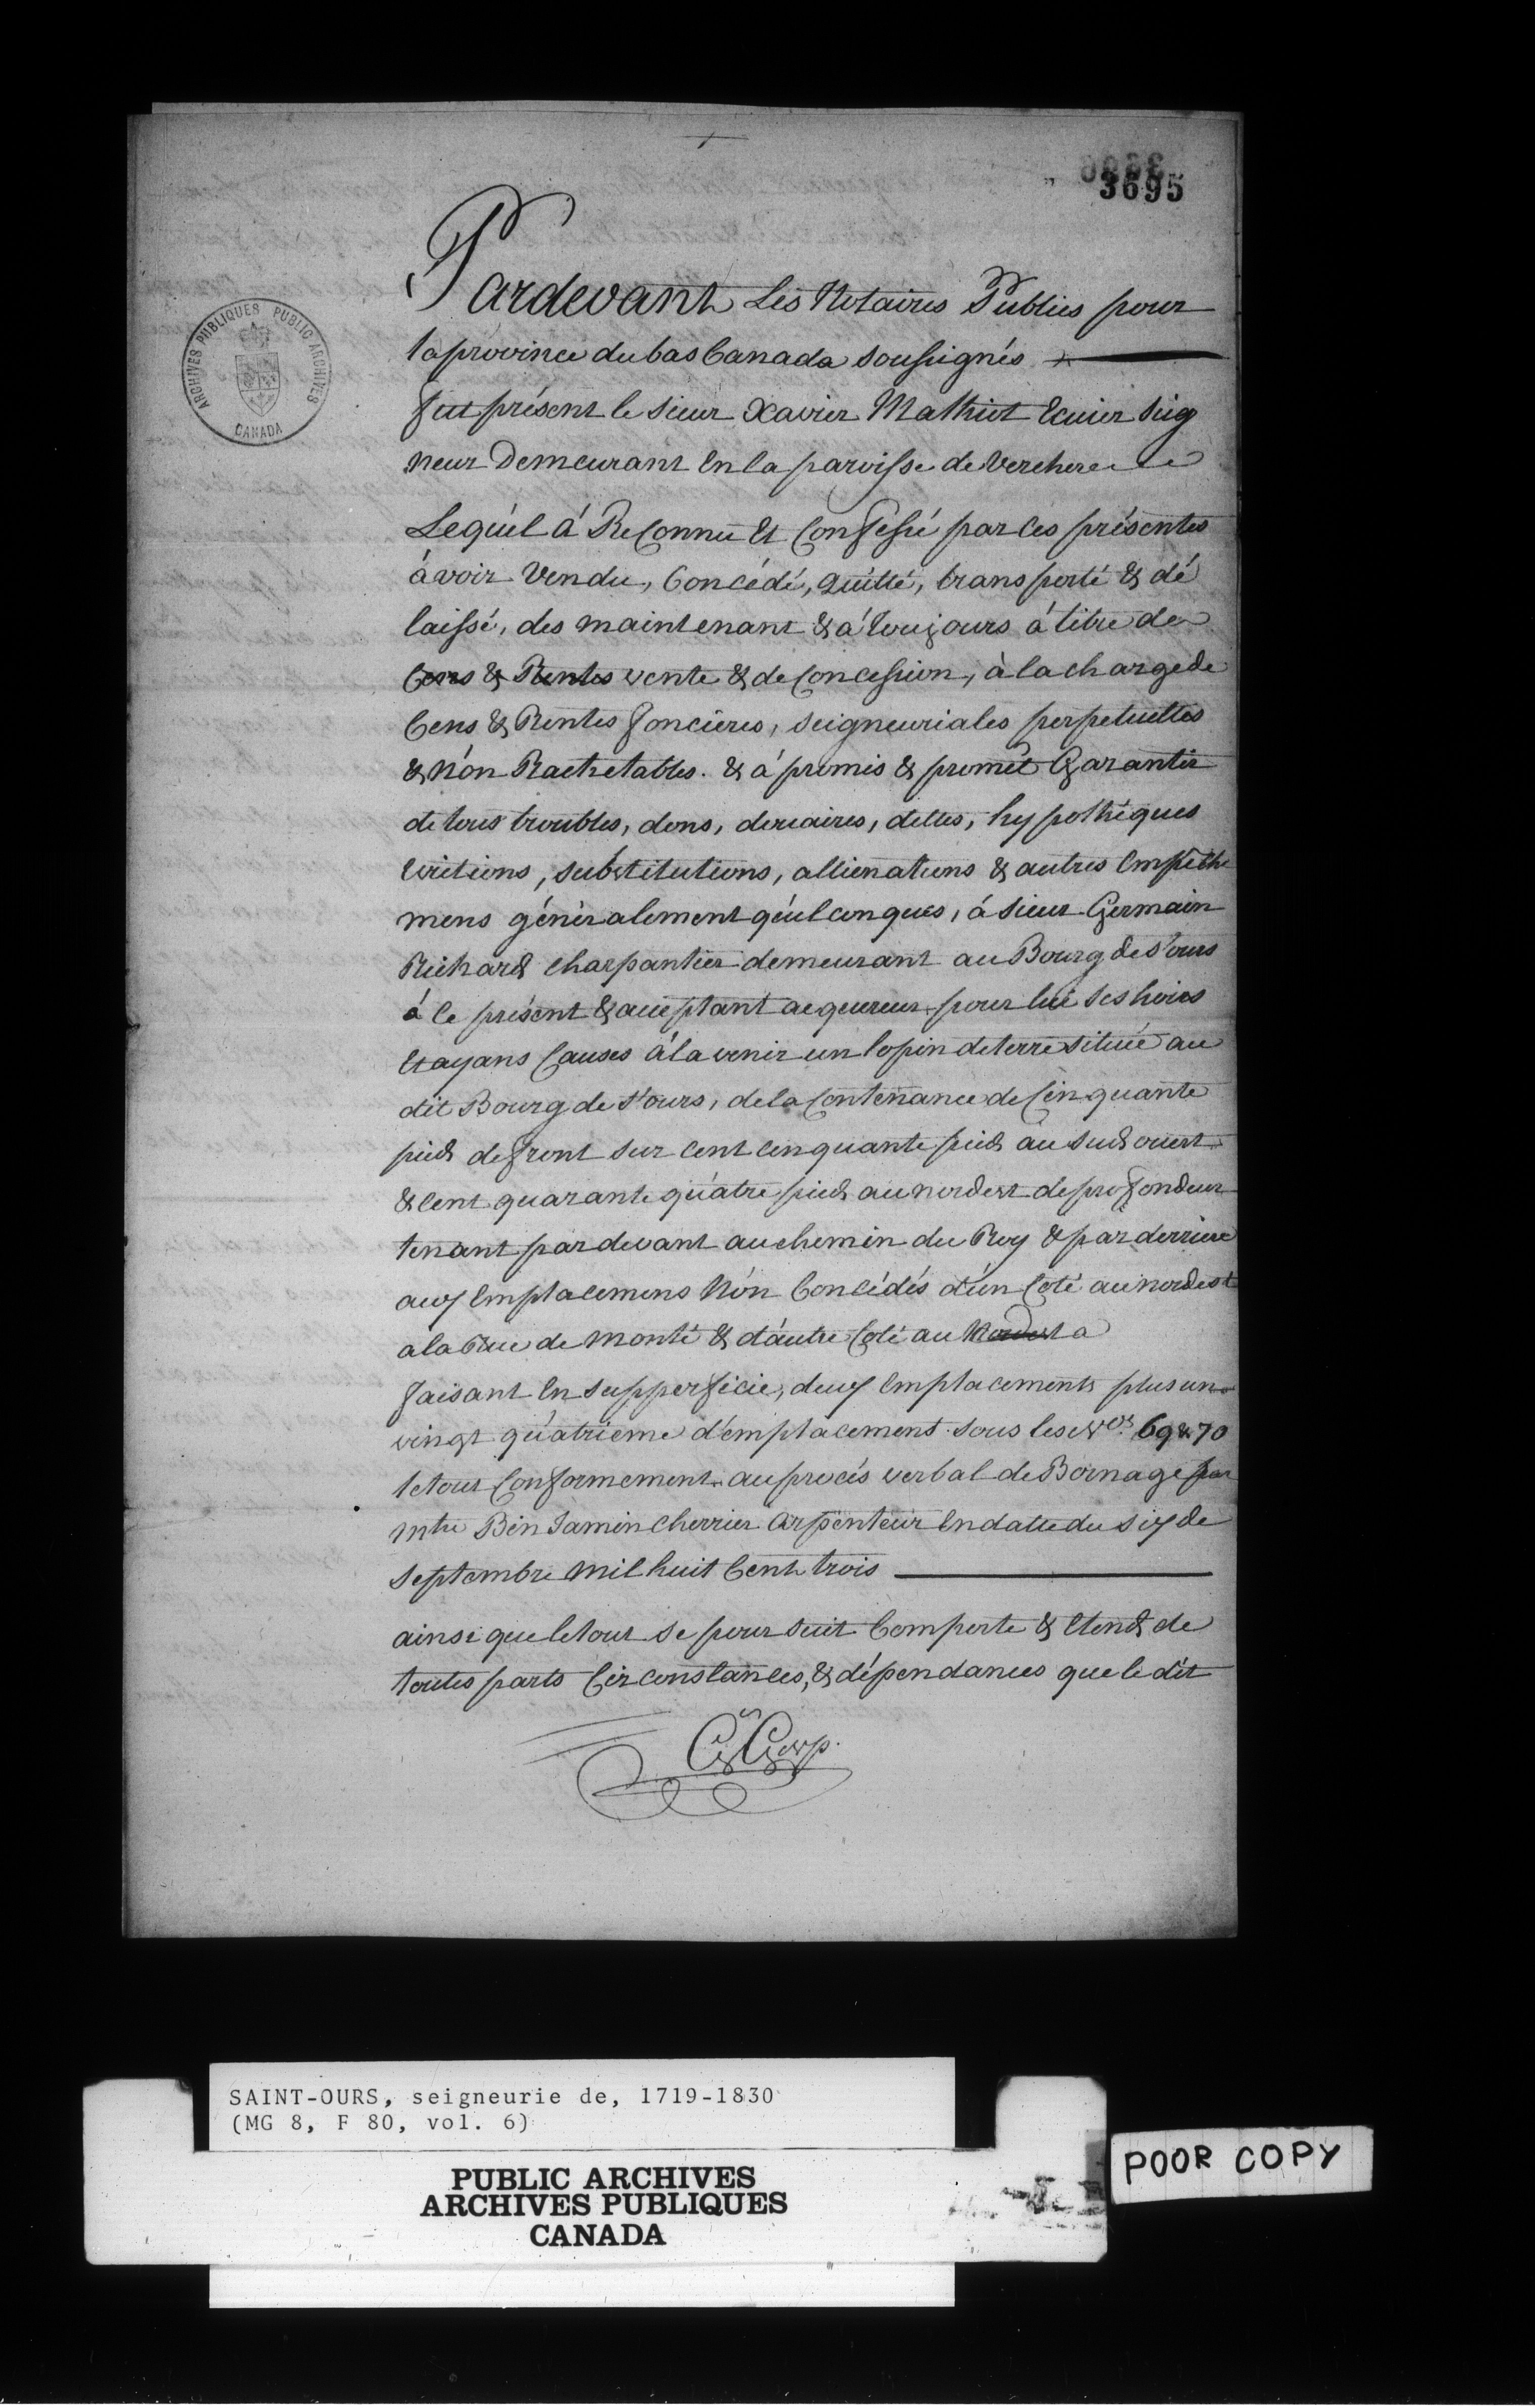 3695
Pardevant Les Notaires Publics pour
la province du bas Canada soussignés
fut présent le sieur Xavier Mathiot Ecuier Seig
neur Demeurant En la paroisse de Verchere
Lequel á Reconnu Et Confessé par ces présentes
ávoir Vendu, Concédé, Quitté, transporté & dé
laissé, des maintenant & á Toujours á titre de
Cens & Rentes vente & de Concession, à la charge de
Cens & Rentes foncieres, seigneuriales perpetuelles
& Nón Rachetables. & á promis & promét Garantir
de tous troubles, dons, douaires, dettes, hypothéques
Evitions, substitutions, allienations & autres Empêche
mens généralement quélconques, á sieur Germain
Richard charpantier demeurant au Bourg de St ours
á Ce présent & acceptant acquereur pour lui ses hoirs
Et ayans Causes á la venir un lopin de terre située au
dit Bourg de St ours, de la Contenance de Cinquante
pieds de front sur cent cinquante pieds au sud ouest
& Cent quarante quátre pieds au nordest de profondeur
tenant par devant au chemin du Roy & par derriere
aux Emplacemens Nón Concédés d'ún Coté au nordest
a la Rue de monté & d'áutre Coté au Nordest a
faisant En supperficie, deux Emplacements plus un
vingt quátrieme d'émplacement sous les Nos. 69 & 70
le tout Conformement au procés verbal de Bornage par
Mtre Benjamin Cherrier Arpenteur En datte du six de
Septembre Mil huit Cent trois
ainsi que le tout se poursuit Comporte & Etend de
toutes parts Circonstances, & dépendances que le dit
ARCHIVES PUBLIQUES PUBLIC ARCHIVES
CANADA
SAINT-OURS, seigneurie de, 1719-1830
(MG 8, F 80, vol. 6)
PUBLIC ARCHIVES
ARCHIVES PUBLIQUES
CANADA
POOR COPY